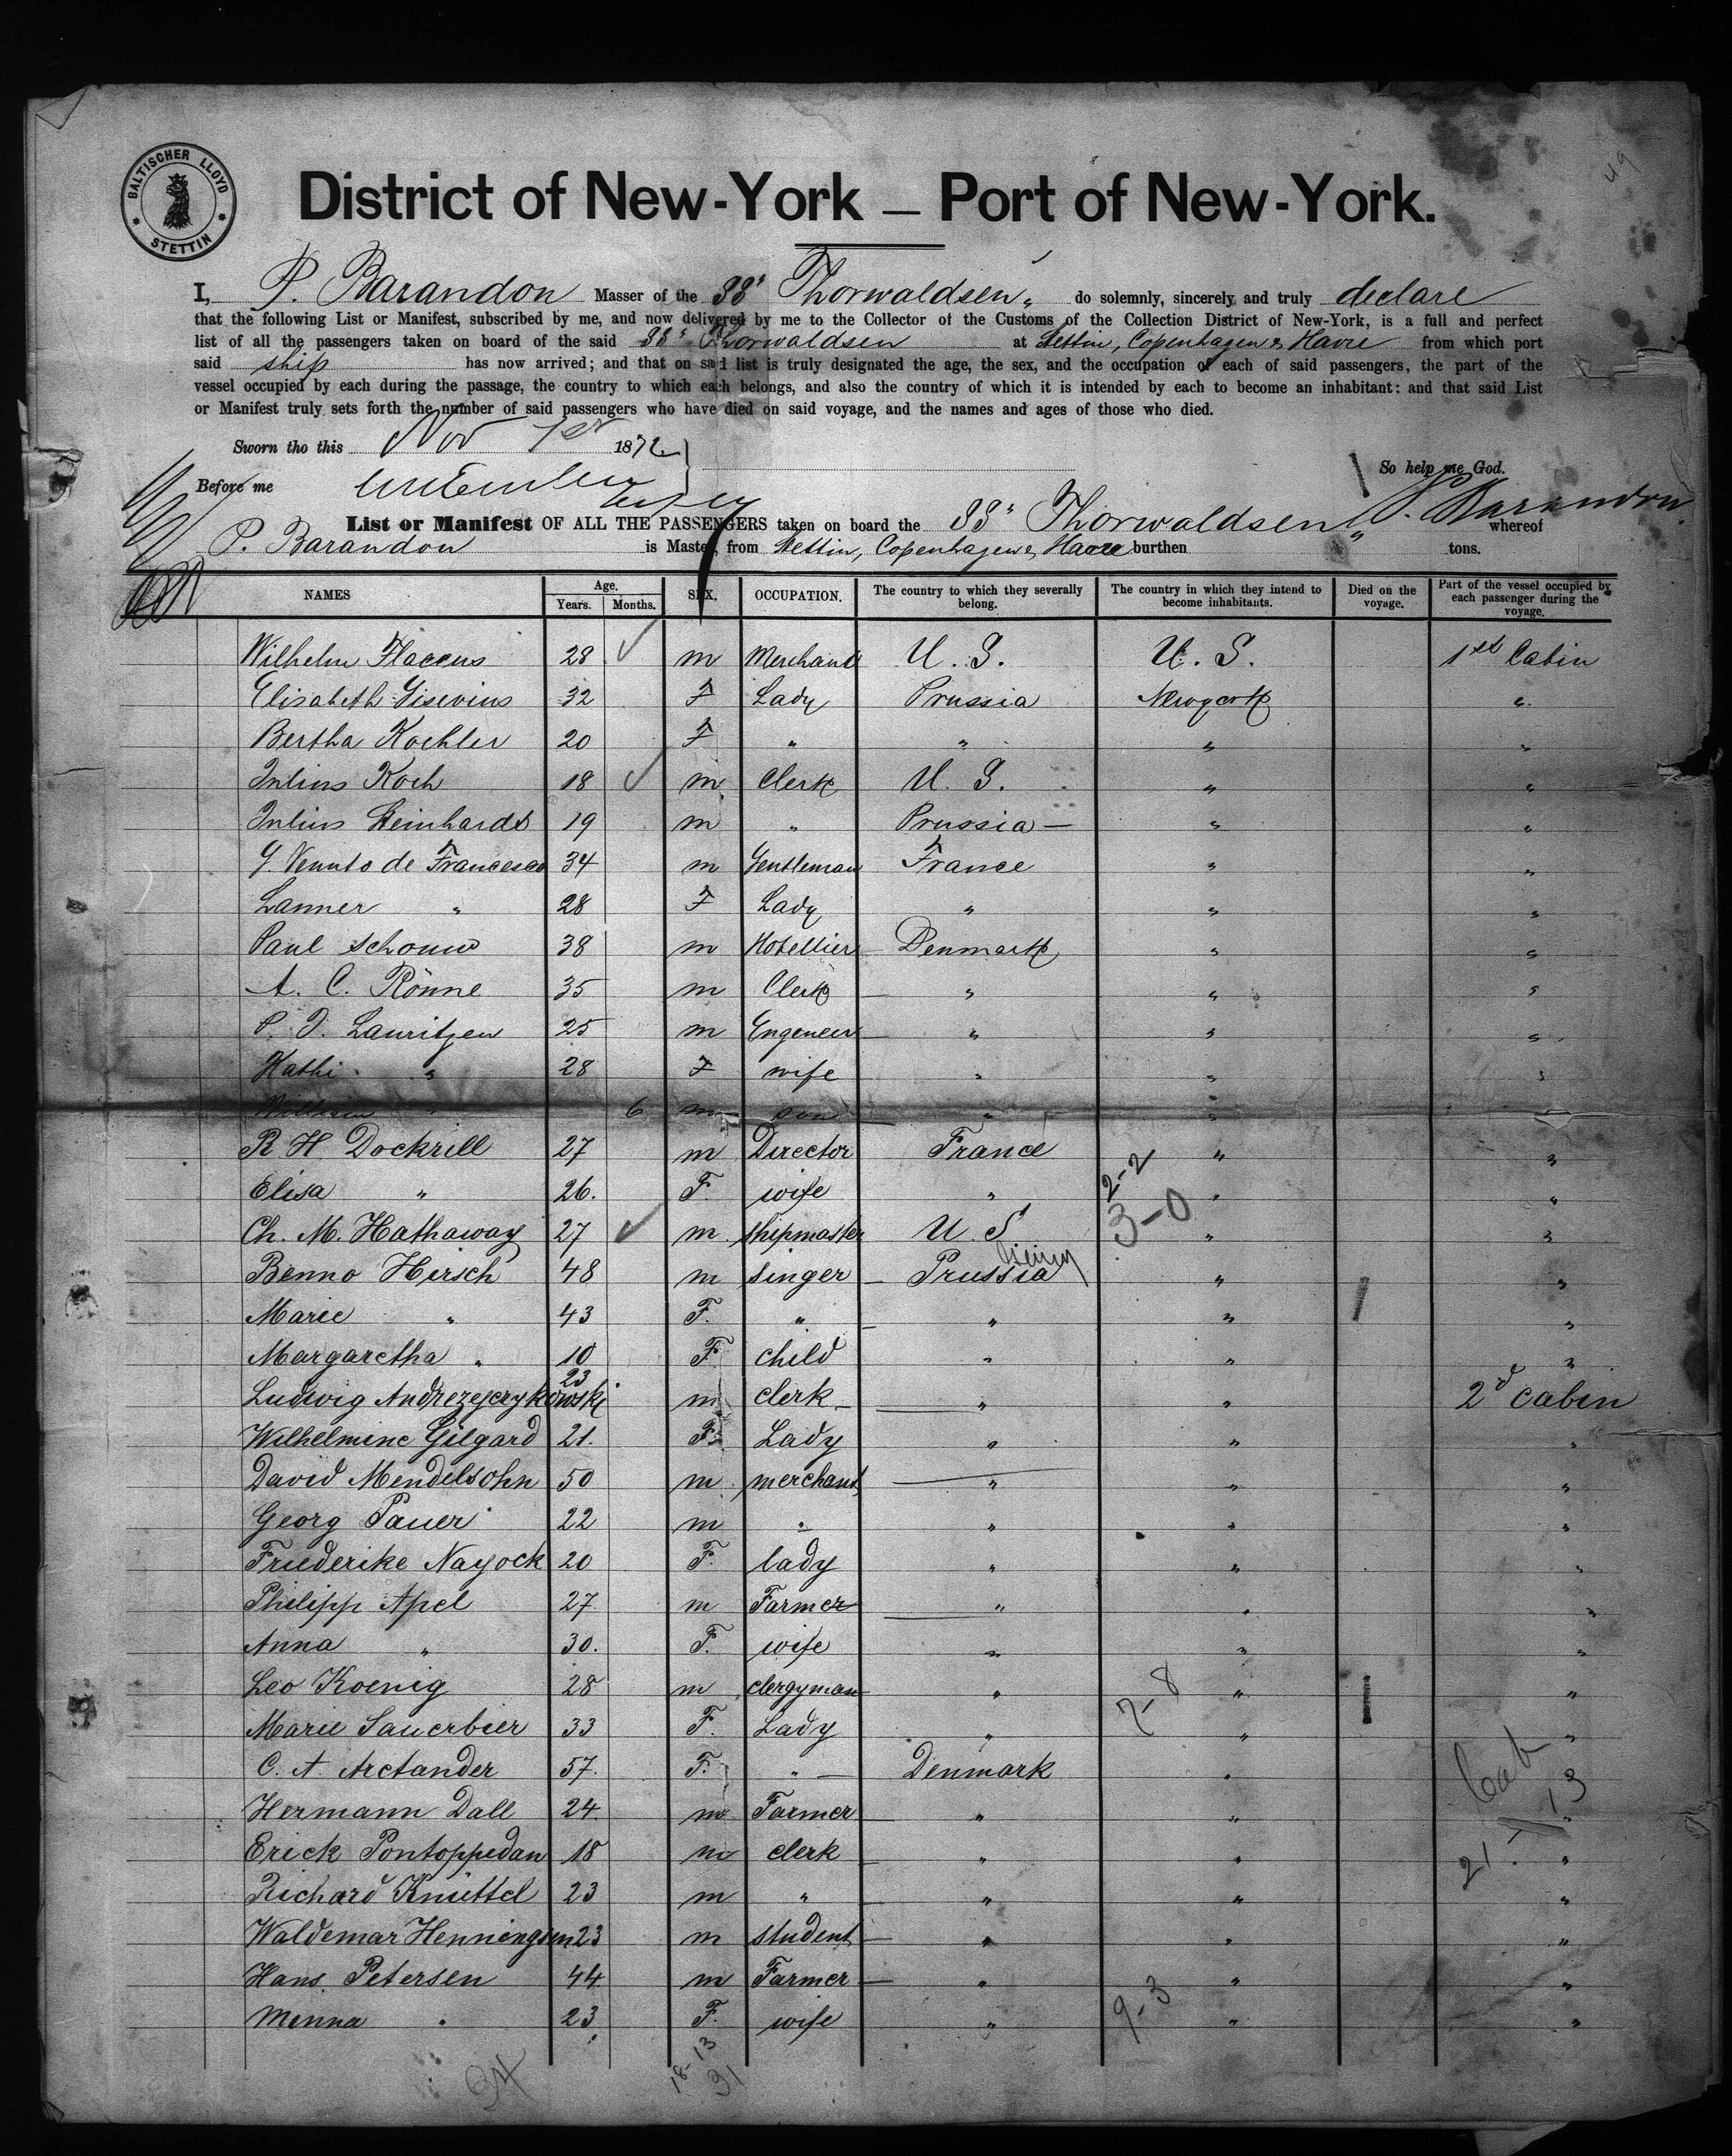 BALTISCHER LLOYD
STETTIN
49
District of New-York — Port of New-York.
I, P. Barandon Masser of the SS" Thorwaldsen" do solemnly, sincerely and truly declare
that the following List or Manifest, subscribed by me, and now delivered by me to the Collector of the Customs of the Collection District of New-York, is a full and perfect
list of all the passengers taken on board of the said SS" Thorwaldsen at Stettin, Copenhagen & Havre from which port
said ship has now arrived; and that on said list is truly designated the age, the sex, and the occupation of each of said passengers, the part of the
vessel occupied by each during the passage, the country to which each belongs, and also the country of which it is intended by each to become an inhabitant: and that said List
or Manifest truly sets forth the number of said passengers who have died on said voyage, and the names and ages of those who died.
Sworn tho this Nov 1st 1872
So help me God.
Before me
P. Barandon
List or Manifest OF ALL THE PASSENGERS taken on board the SS" Thorwaldsen" whereof
P. Barandon is Master, from Stettin, Copenhagen & Havre burthen tons.
NAMES Age. Years. Months. SEX. OCCUPATION. The country to which they severally belong. The country in which they intend to become inhabitants. Died on the voyage. Part of the vessel occupied by each passenger during the voyage.
Wilhelm Flaccus 28 m Merchant U. S. U. S. 1st Cabin
Elisabeth Gisevius 32 F Lady Prussia Newyork "
Bertha Kochler 20 F " " " "
Julius Koch 18 m Clerk U. S. " "
Julius Steinhardt 19 m " Prussia — " "
G. Venuto de Francesco 34 m Gentleman France " "
Lanner " 28 F Lady " " "
Paul Schouw 38 m Hotellier Denmark " "
A. C. Rönne 35 m Clerk " " "
P. J. Lauritzen 25 m Engeneer " " "
Kathi " 28 F wife " " "
Wilhelm " 6 m son " "
R H Dockrill 27 m Director France " "
Elisa " 26. F. wife " 2-2 " "
Ch. M. Hathaway 27 m shipmaster U. S 3-0 " "
Benno Hirsch 48 m singer Prussia " "
Marie " 43 F. " " " "
Margaretha " 10 F. child " " "
Ludwig Andrezejczykowski 23 m clerk " " 2d cabin
Wilhelmine Gilgard 21. F. Lady " " "
David Mendelsohn 50 m merchant " " "
Georg Pauer 22 m " " " "
Friederike Nayock 20 F. lady " " "
Philipp Apel 27. m Farmer " " "
Anna " 30. F. wife " " "
Leo Koenig 28 m clergyman " " "
Marie Sauerbier 33 F. Lady " 7-8 " "
C. A. Arctander 57. F. " Denmark " Cab
Hermann Dall 24. m Farmer " " 13 "
Erick Pontoppedan 18 m clerk " " 21 "
Richard Knüttel 23 m " " " "
Waldemar Henningsen 23 m student " " "
Hans Petersen 44. m Farmer " " "
Menna " 23 F. wife " 9-3 " "
34
18-13
31